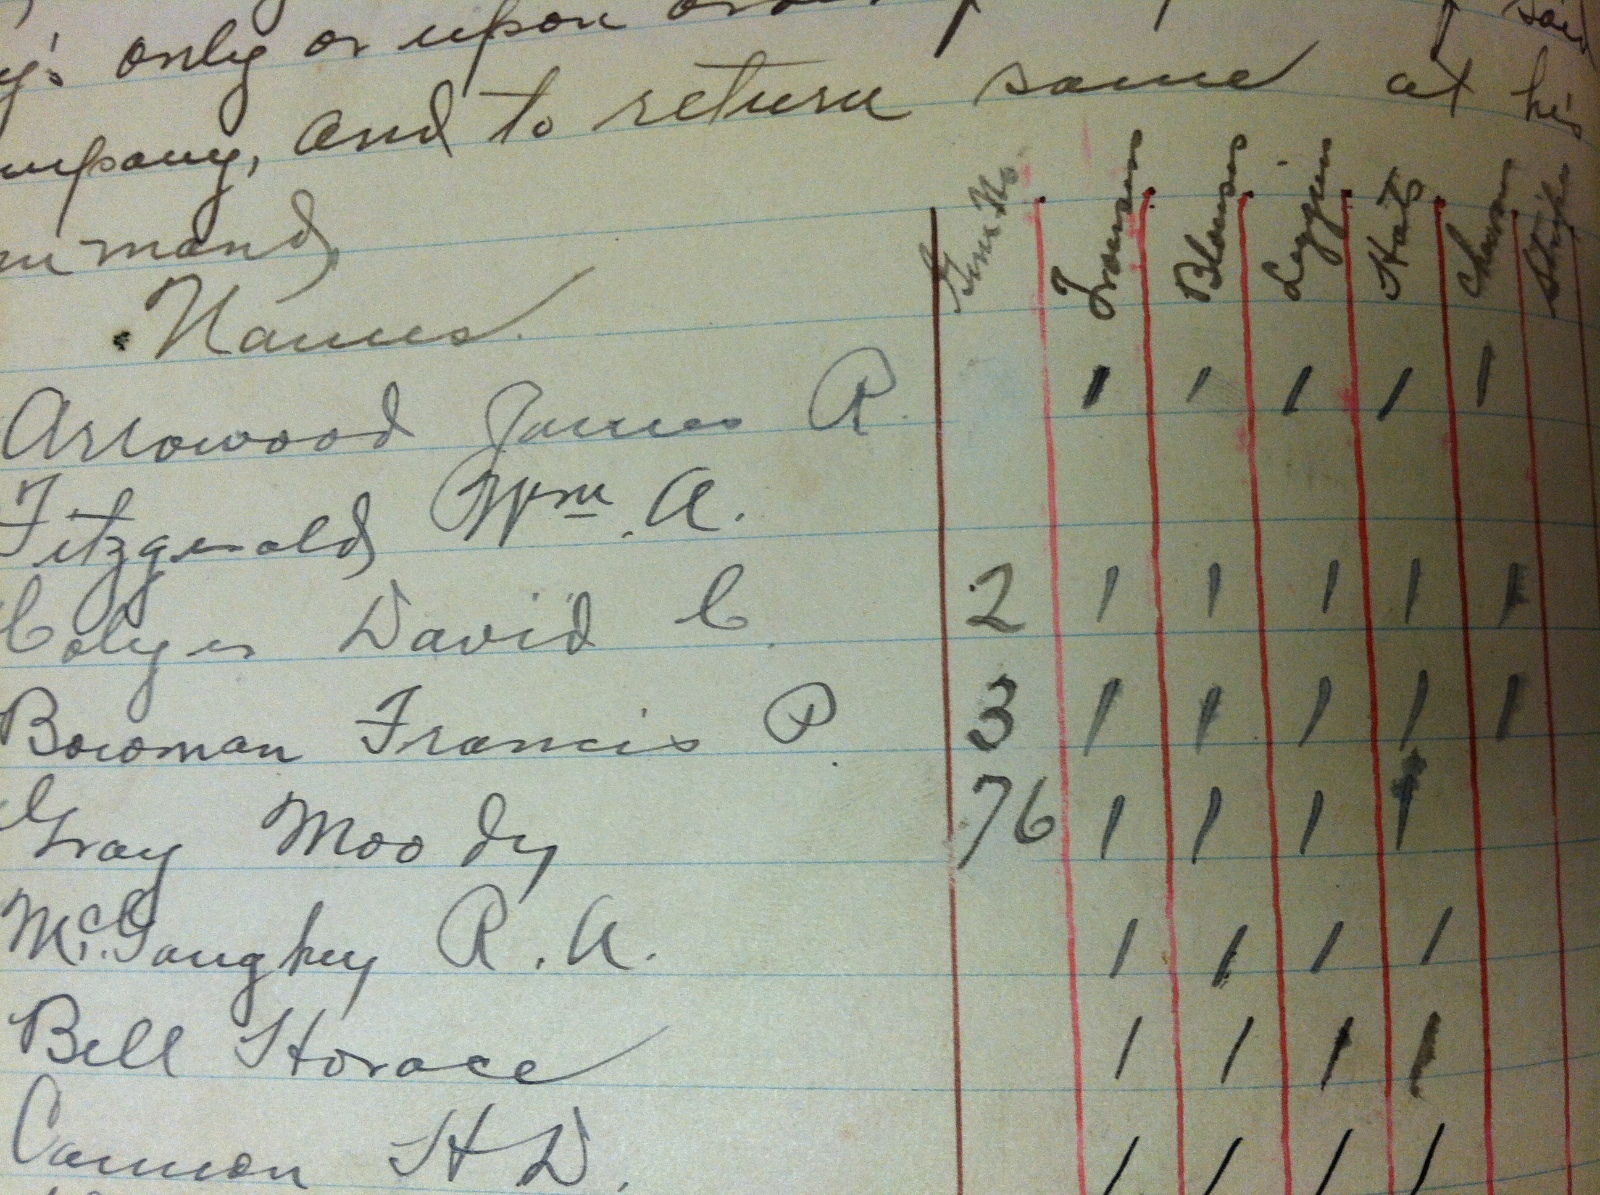 y's only or upon said
ompany, and to return same at his
mmand
Names. Gun No. Trousers Blouses Leggins Hats Chevrons Stripes
Arrowood James R. 1 1 1 1 1
Fitzgerald Wm. A.
Colyer David C. 2 1 1 1 1 1
Bowman Francis P. 3 1 1 1 1 1
Gray Moody 76 1 1 1 1
McGaughey R. A. 1 1 1 1
Bell Horace 1 1 1 1
Cannon H D. 1 1 1 1